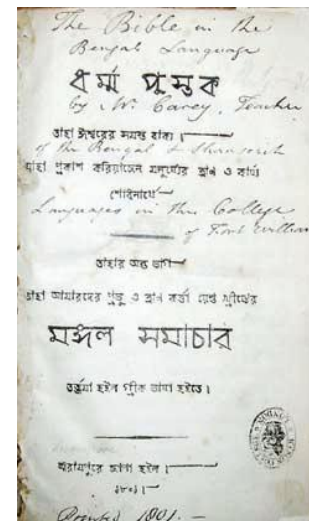 The Bible in the
Bengali Language
ধর্ম্ম পুস্তক
by W. Carey, Teacher
তাহা ঈশ্বরের সমস্ত বাক্য ।
of the Bengali & Shanscrit
যাহা প্রকাশ করিয়াছেন মনুষ্যের ত্রান ও কার্য্য
শোধনার্থে
Languages in the College
of Fort William
তাহার অন্ত ভাগ
তাহা আমারদের প্রভু ও ত্রান কর্ত্তা য়েশু খ্রীষ্টের
মঙ্গল সমাচার
তর্জ্জমা হইল গ্রীক ভাষা হইতে ।
শ্রীরামপুরে ছাপা হইল ।
১৮০১ ।
Printed 1801. —